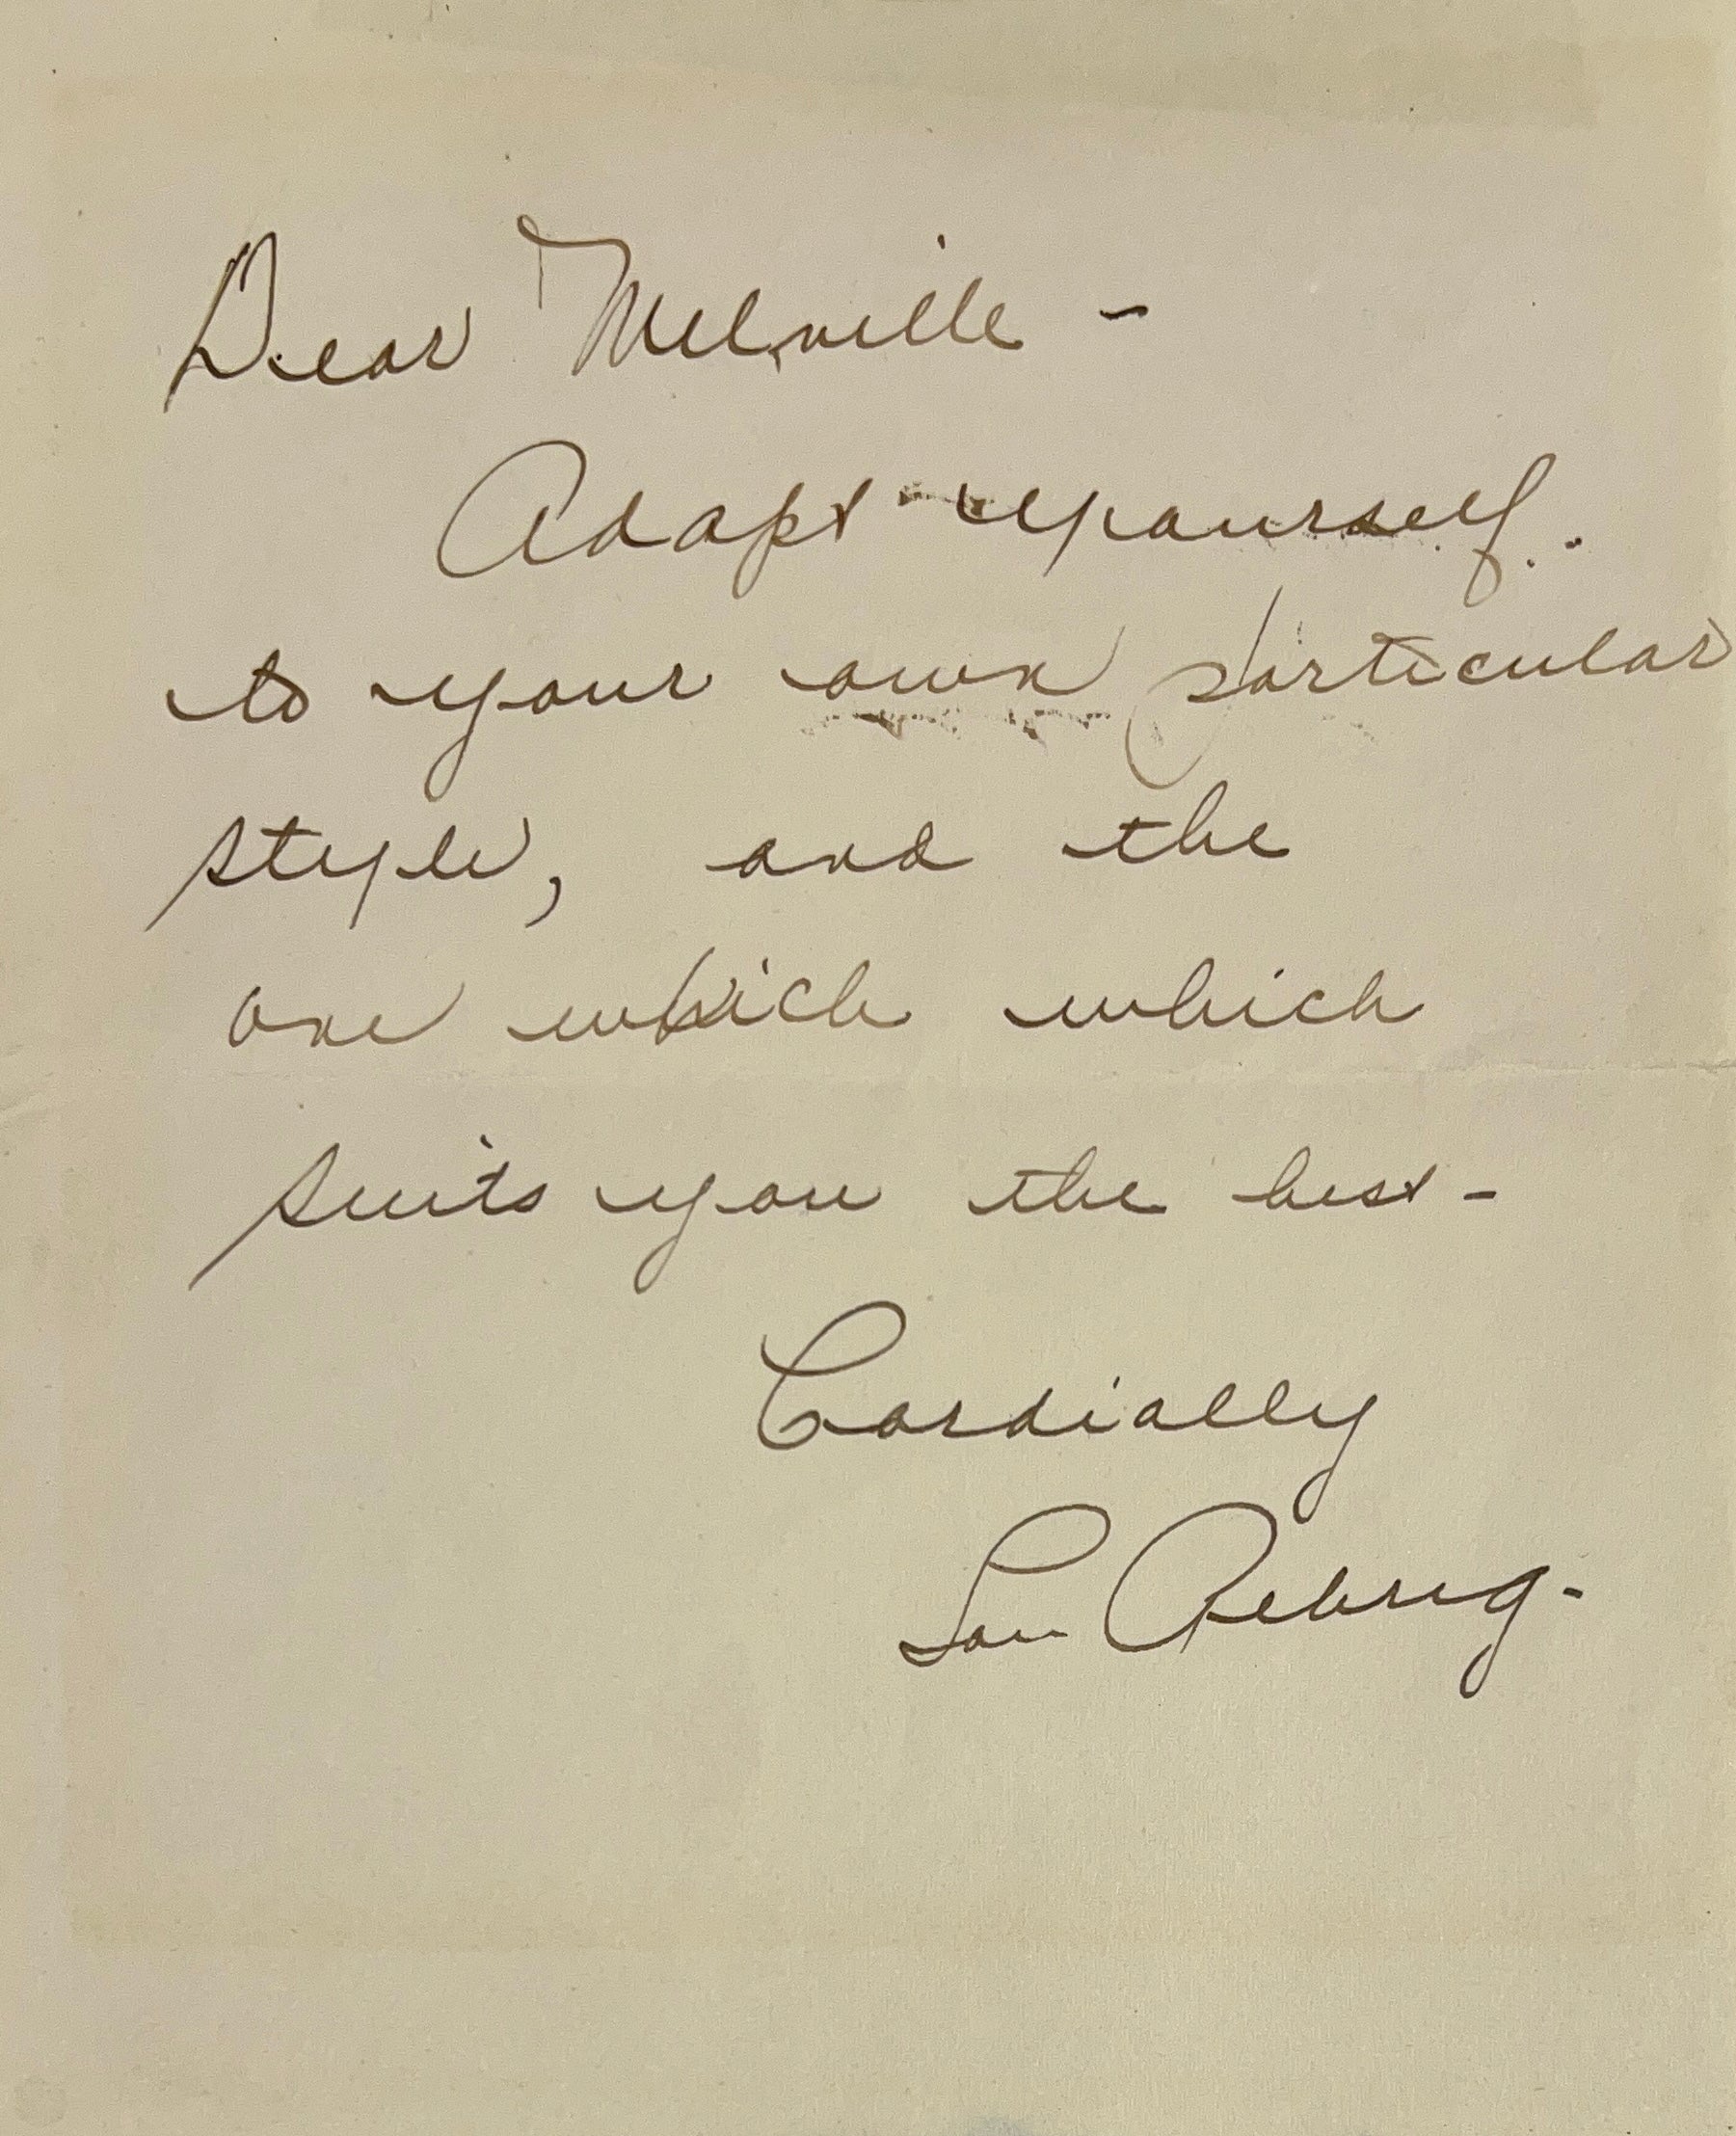 Dear Melville -
Adapt yourself
to your own particular
style, and the
one which which
suits you the best -
Cordially
Lou Gehrig -